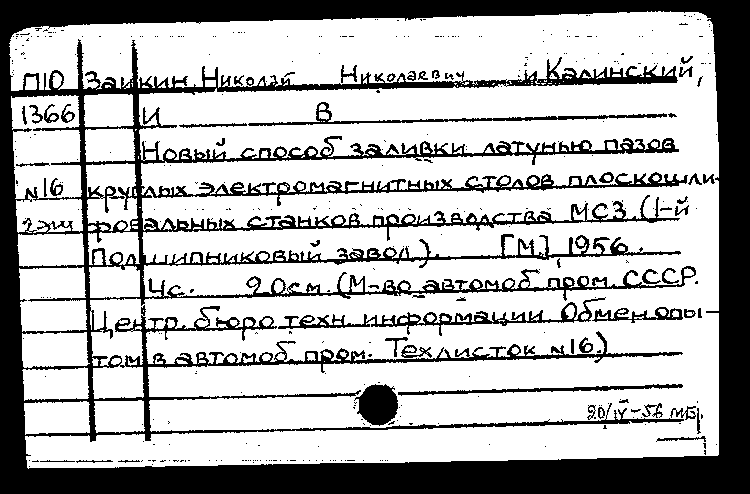 П10 Заикин, Николай Николаевич и Калинский,
1366 И В
Новый способ заливки латунью пазов
№16 круглых электромагнитных столов плоскошли-
2экз фовальных станков производства МСЗ. (1-й
Подшипниковый завод). [М.] 1956.
4с. 20см. (М-во автомоб. пром. СССР.
Центр. бюро техн. информации. Обмен опы-
том в автомоб. пром. Техлисток №16.)
20/IV-56